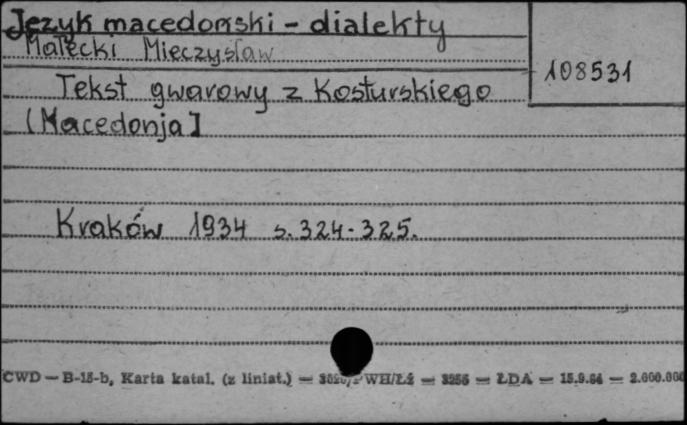 Język macedoński - dialekty
Małecki Mieczysław
108531
Tekst gwarowy z Kosturskiego
(Macedonja]
Kraków 1934 s. 324-325.
CWD — B-15-b, Karta katal. (z liniat.) — WH/Łż — 3256 — ŁDA — 15.9.64 — 2.000.000